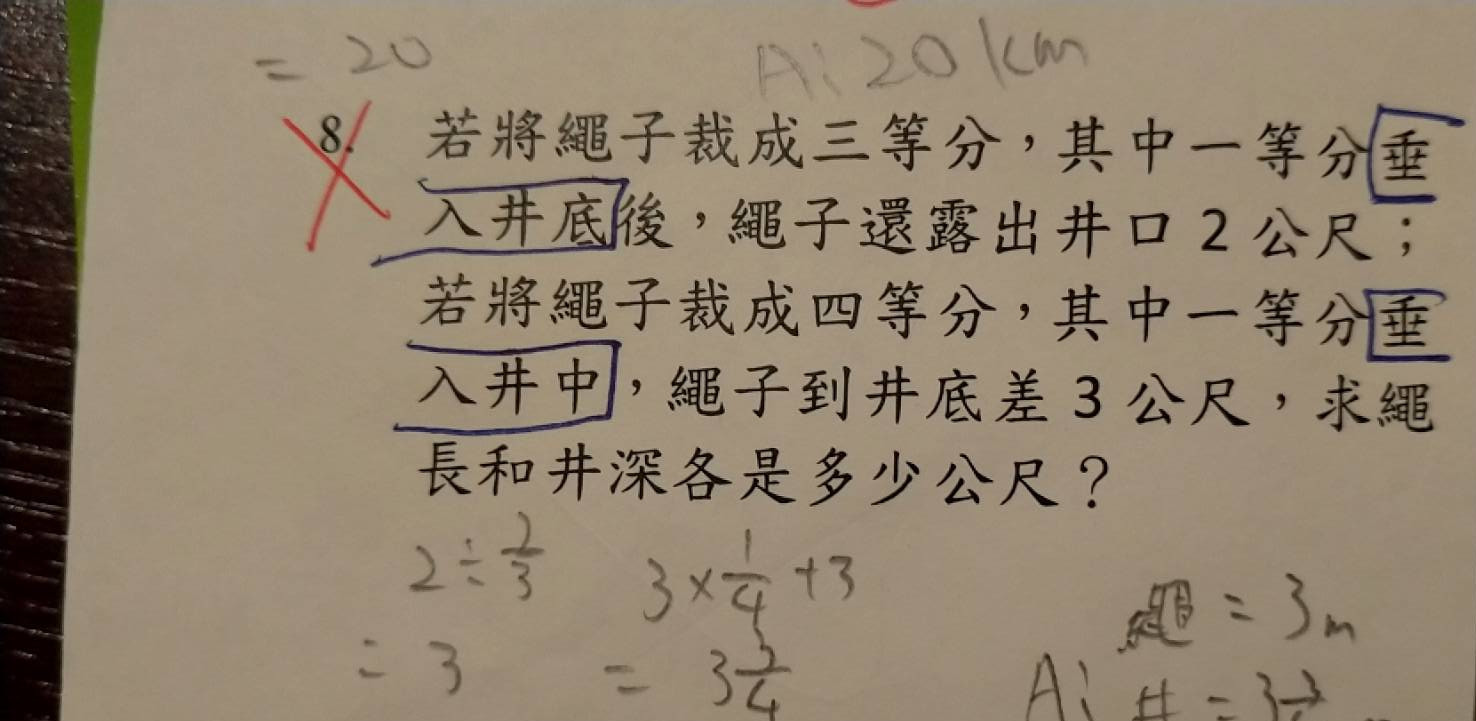 = 20 A: 20 km
8. 若將繩子裁成三等分，其中一等分垂
入井底後，繩子還露出井口 2 公尺；
若將繩子裁成四等分，其中一等分垂
入井中，繩子到井底差 3 公尺，求繩
長和井深各是多少公尺？
2÷2/3 3×1/4+3
= 3 = 3 3/4
繩 = 3m
A: 井 = 3